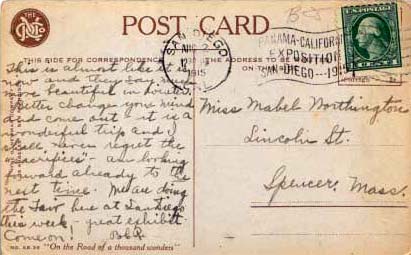 POST CARD
THIS SIDE FOR CORRESPONDENCE
THE ADDRESS TO BE
ON THIS
SAN DIEGO
12
1915
PANAMA-CALIFORNIA
EXPOSITION
SAN DIEGO---1915
U.S. POSTAGE
1 CENT 1
This is almost like
more beautiful in
Better change your mind
and come out - it is a
wonderful trip and I
shall never regret the
"sacrifices" - am looking
forward already to the
next time. We are doing
the Fair here at San Diego
this week, great exhibit
Come on!
Miss Mabel Worthington
Lincoln St.
Spencer, Mass.
"On the Road of a thousand wonders"